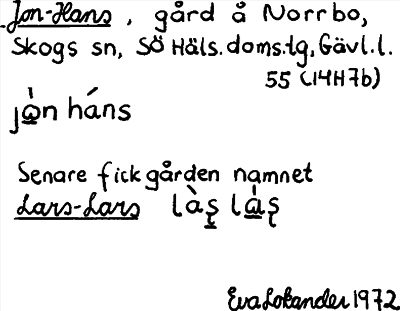 Jon-Hans, gård å Norrbo,
Skogs sn, SÖ Häls. doms.tg, Gävl.l.
55 (14H7b)
jò̱n háns
Senare fick gården namnet
Lars-Lars làș là̱ș
Eva Lokander 1972